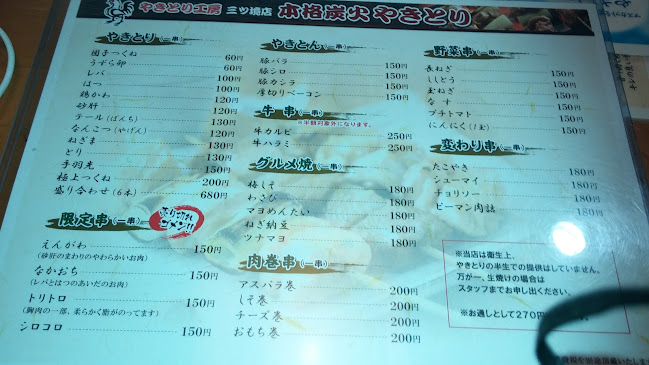 やきとり工房 三ツ境店 本格炭火やきとり
やきとり(一串)
団子つくね 60円
うずら卵 60円
レバ 100円
はつ 100円
鶏かわ 100円
砂肝 120円
テール(ぼんち) 120円
なんこつ(やげん) 120円
ねぎま 130円
とり 130円
手羽先 150円
極上つくね 200円
盛り合わせ(6本) 680円
限定串(一串)
売り切れゴメン!!
えんがわ 150円
(砂肝のまわりのやわらかいお肉)
なかおち 150円
(レバとはつのあいだのお肉)
トリトロ 150円
(胸肉の一部、柔らかく脂がのってます)
シロコロ 150円
やきとん(一串)
豚バラ 150円
豚シロ 150円
豚カシラ 150円
厚切りベーコン 150円
牛串(一串)
※半額対象外になります。
牛カルビ 250円
牛ハラミ 250円
グルメ焼(一串)
梅しそ 180円
わさび 180円
マヨめんたい 180円
ねぎ納豆 180円
ツナマヨ 180円
肉巻串(一串)
アスパラ巻 200円
しそ巻 200円
チーズ巻 200円
おもち巻 200円
野菜串(一串)
長ねぎ 150円
しし唐 150円
玉ねぎ 150円
なす 150円
プチトマト 150円
にんにく(1ヶ) 150円
変わり串(一串)
たこやき 180円
シューマイ 180円
チョリソー 180円
ピーマン肉詰 180円
※当店は衛生上、
やきとりの半生での提供はしていません。
万が一、生焼けの場合は
スタッフまでお申し出ください。
※お通しとして270円